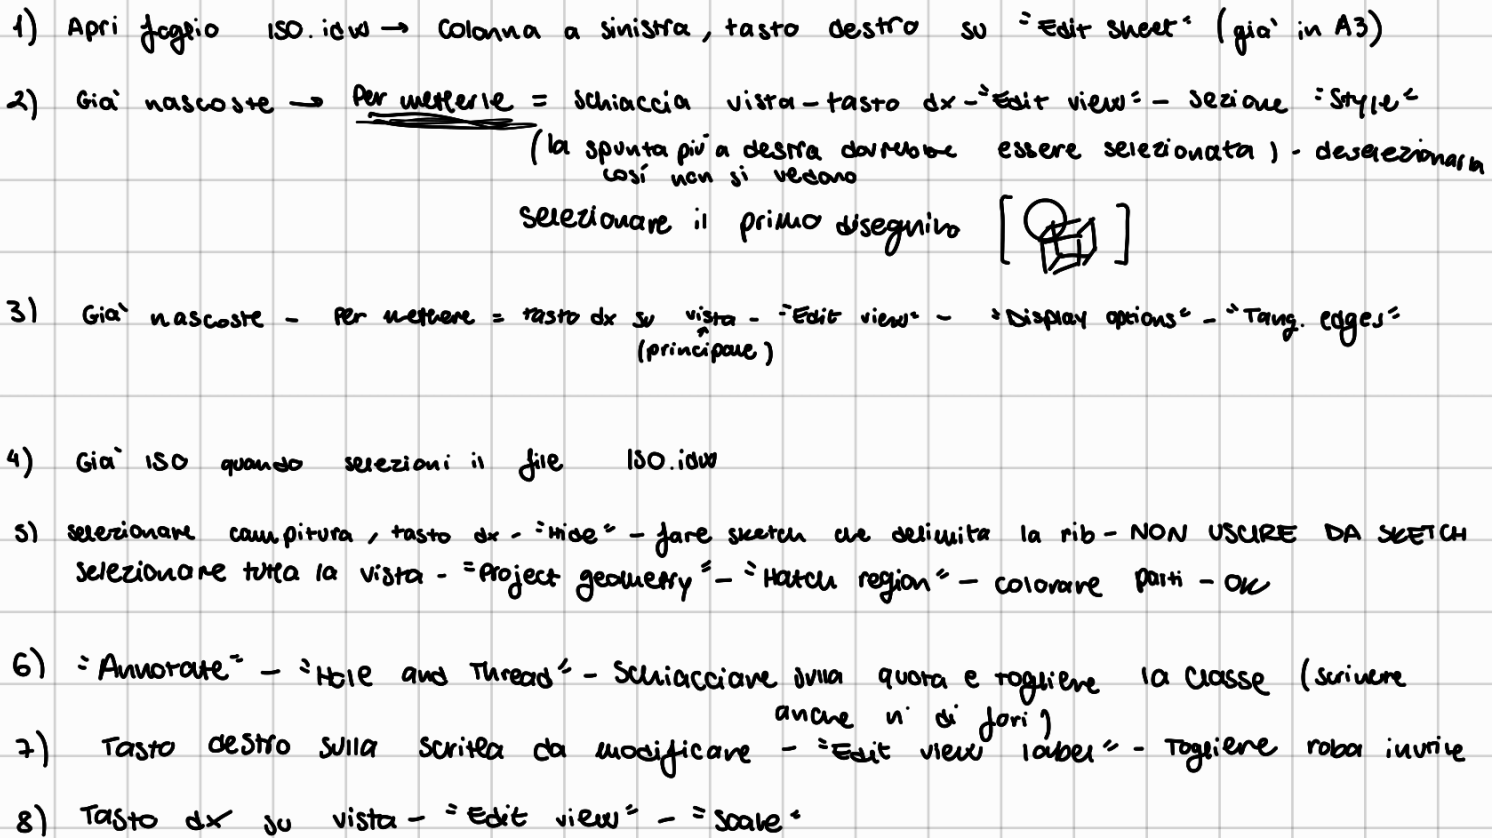 1) Apri foglio ISO.idw → colonna a sinistra, tasto destro su "Edit sheet" (già in A3)
2) Già nascoste → Per metterle = schiaccia vista - tasto dx - "Edit view" - sezione "Style"
(la spunta più a destra dovrebbe essere selezionata) - deselezionarla
così non si vedono
selezionare il primo disegnino [ ]
3) Già nascoste - Per mettere = tasto dx su vista - "Edit view" - "Display options" - "Tang. edges"
↑
(principale)
4) Già ISO quando selezioni il file ISO.idw
5) selezionare campitura, tasto dx - "Hide" - fare sketch che delimita la rib - NON USCIRE DA SKETCH
selezionare tutta la vista - "Project geometry" - "Hatch region" - colorare parti - OK
6) "Annotate" - "Hole and Thread" - Schiacciare sulla quota e togliere la classe (scrivere
anche n° di fori)
7) Tasto destro sulla scritta da modificare - "Edit view label" - Togliere roba inutile
8) Tasto dx su vista - "Edit view" - "Scale"